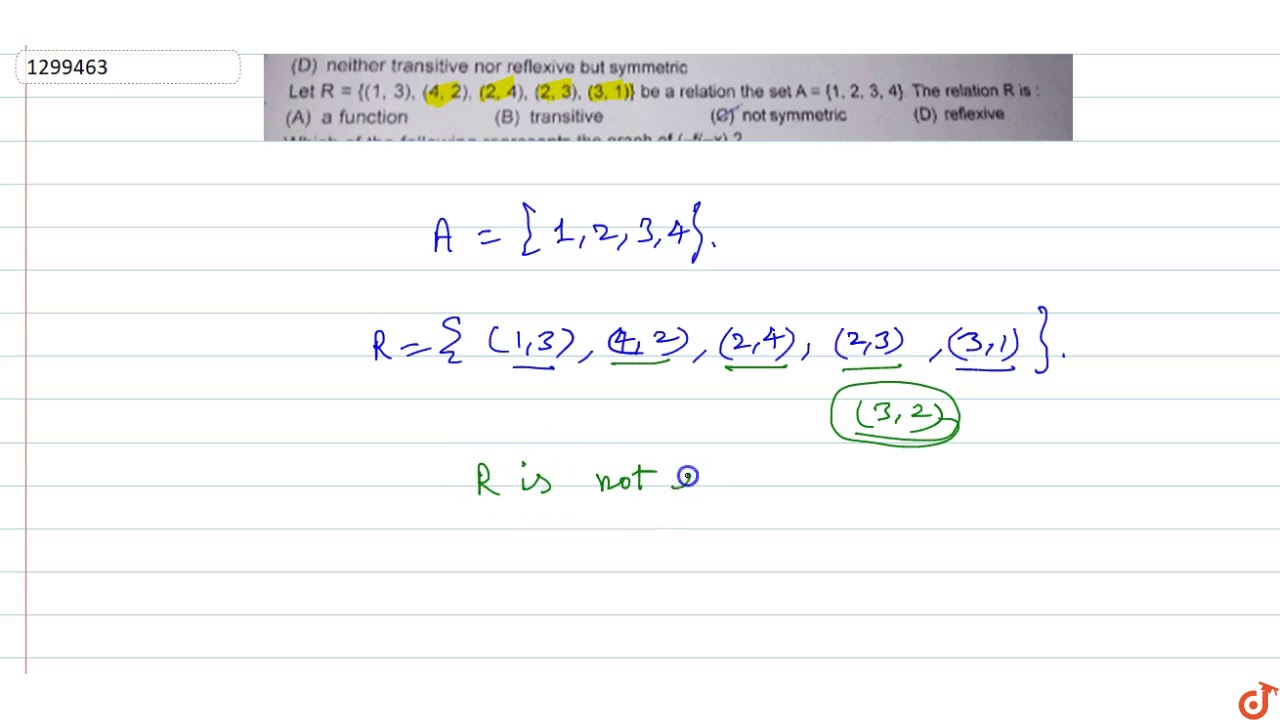 1299463
(D) neither transitive nor reflexive but symmetric
Let R = {(1, 3), (4, 2), (2, 4), (2, 3), (3, 1)} be a relation the set A = {1, 2, 3, 4}. The relation R is :
(A) a function (B) transitive (C) not symmetric (D) reflexive
Which of the following represents the graph of
A = { 1, 2, 3, 4}.
R = { (1, 3), (4, 2), (2, 4), (2, 3), (3, 1) }.
(3, 2)
R is not